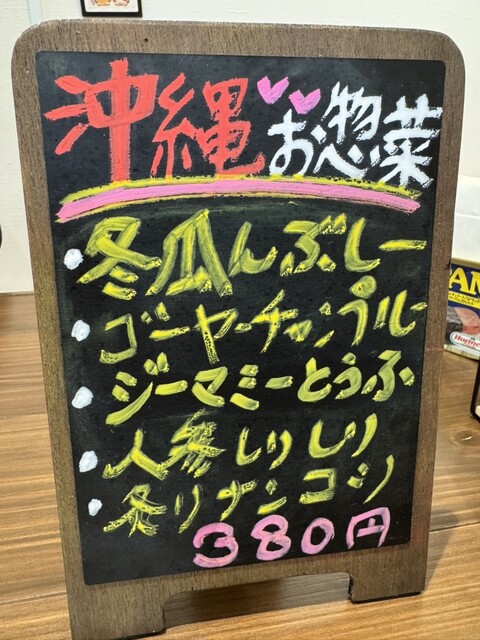 沖縄 お惣菜
・冬瓜んぶしー
・ゴーヤーチャンプルー
・ジーマミーとうふ
・人参しりしり
380円